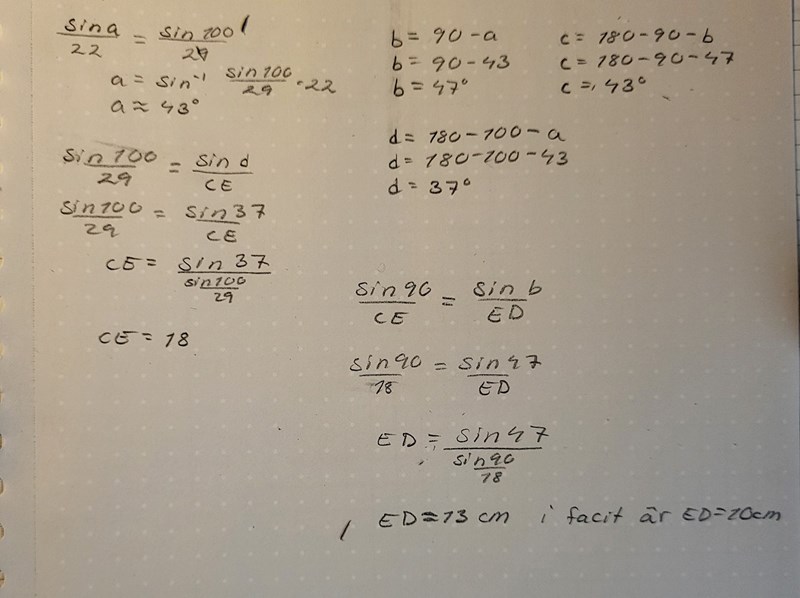 sin a / 22 = sin 100 / 29
a = sin⁻¹ sin 100 / 29 · 22
a ≈ 43°
sin 100 / 29 = sin d / CE
sin 100 / 29 = sin 37 / CE
CE = sin 37 / (sin 100 / 29)
CE = 18
b = 90 - a
b = 90 - 43
b = 47°
c = 180 - 90 - b
c = 180 - 90 - 47
c = 43°
d = 180 - 100 - a
d = 180 - 100 - 43
d = 37°
sin 90 / CE = sin b / ED
sin 90 / 18 = sin 47 / ED
ED = sin 47 / (sin 90 / 18)
ED = 13 cm i facit är ED = 10cm